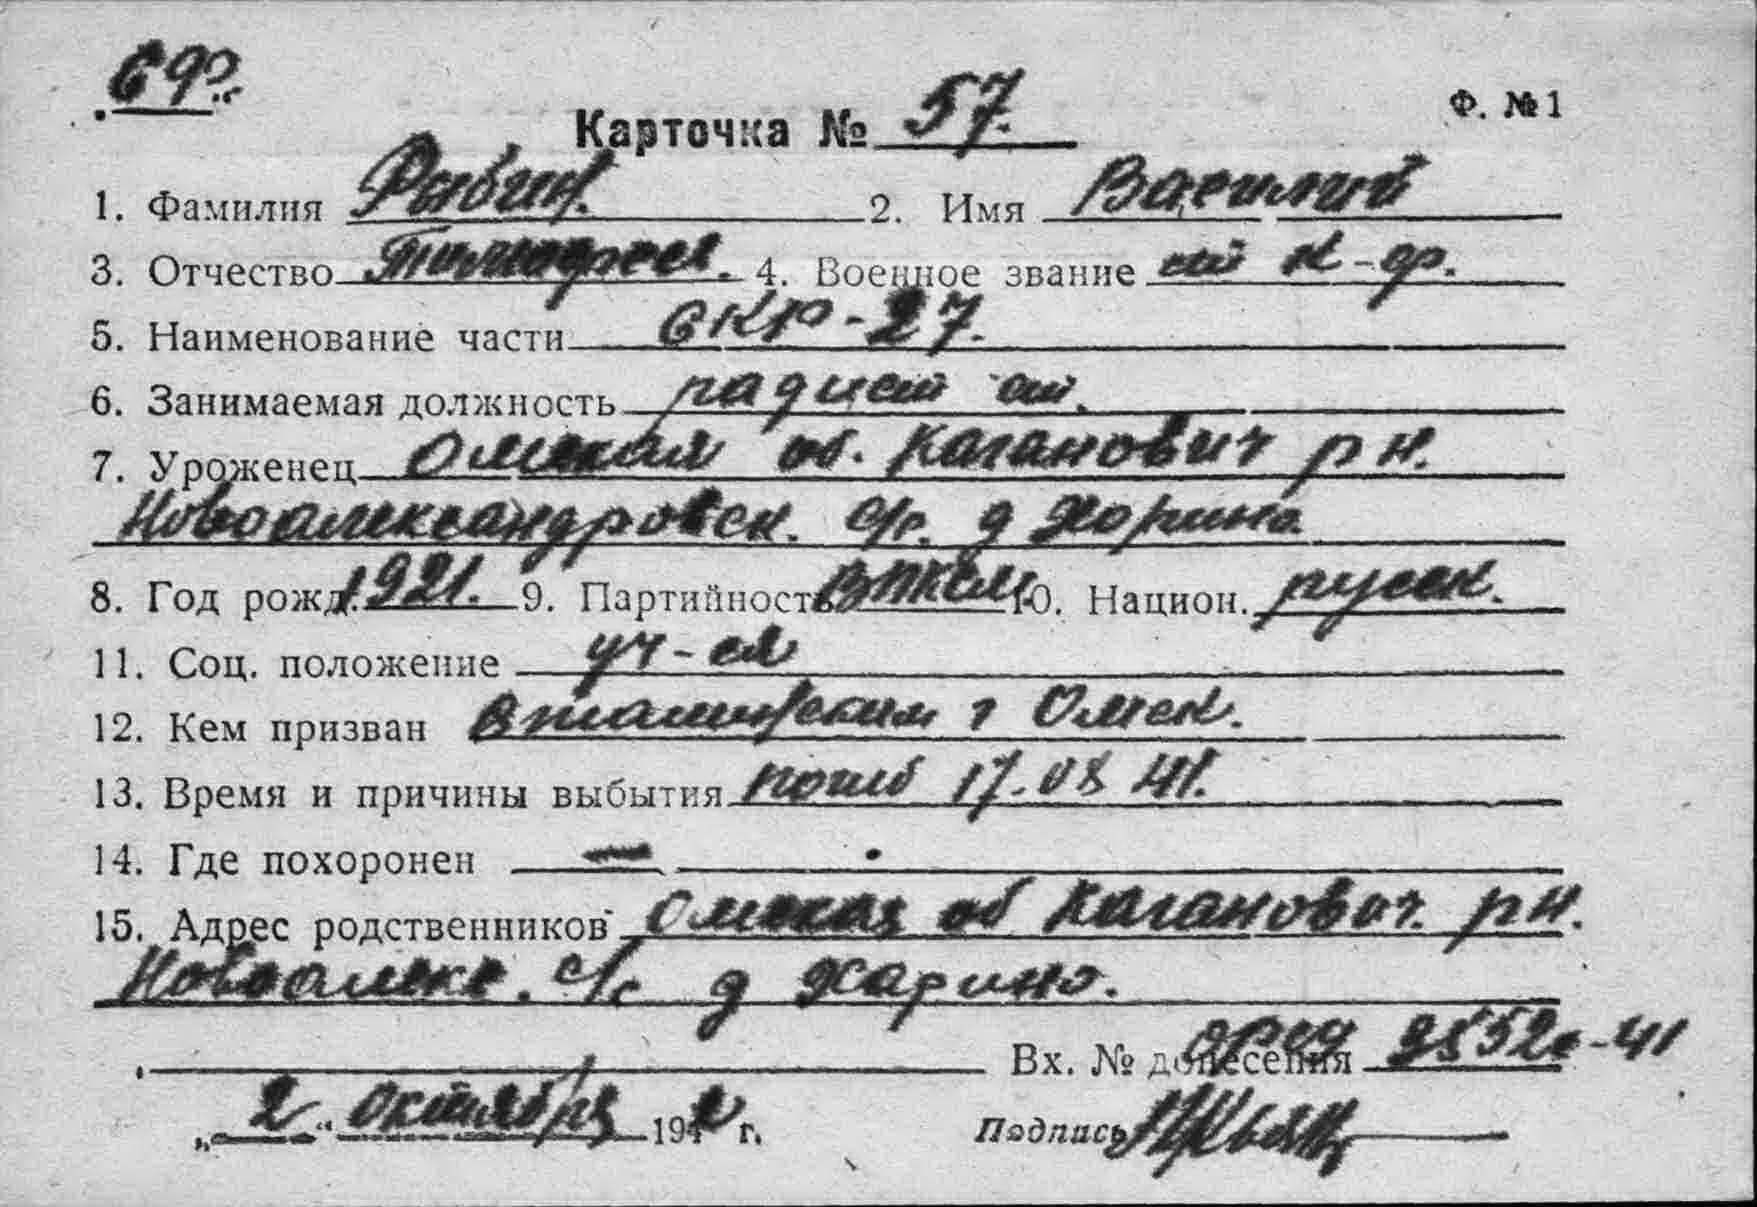 СФ.
Ф. № 1
Карточка № 57.
1. Фамилия Рыбин. 2. Имя Василий
3. Отчество Тимофеев. 4. Военное звание ст к-ф.
5. Наименование части СКР-27.
6. Занимаемая должность радист ст.
7. Уроженец Омская об. Каганович рн.
Новоалександровск. с/с. д Харина
8. Год рожд. 1921. 9. Партийность ВЛКСМ 10. Национ. русск.
11. Соц. положение уч-ся
12. Кем призван Сталинским г Омск.
13. Время и причины выбытия погиб 17.08 41.
14. Где похоронен —
15. Адрес родственников Омская об Каганович. рн.
Новоалекс. с/с д Харино.
Вх. № донесения 41
„2" октября 1942 г. Подпись